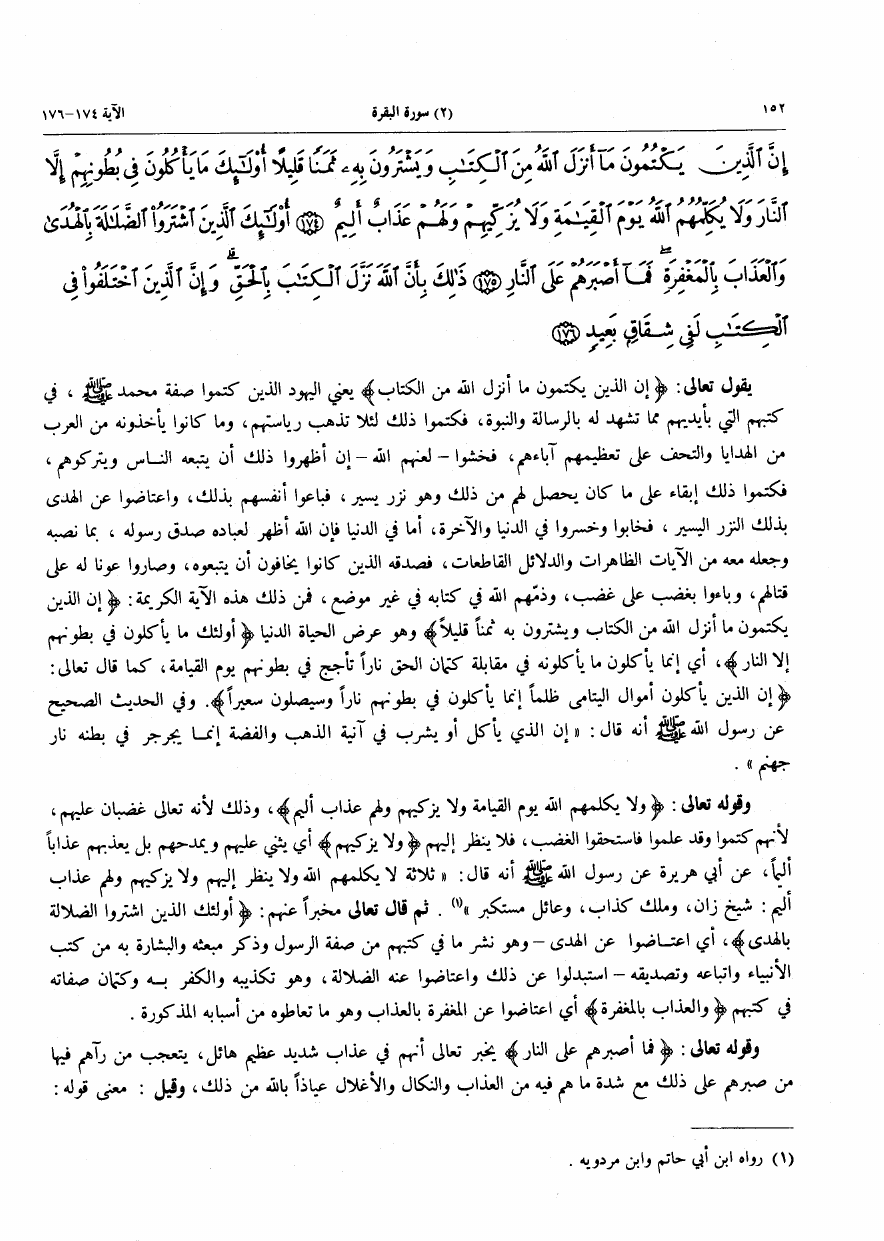 ١٥٢ (٢) سورة البقرة الآية ١٧٤-١٧٦
إِنَّ ٱلَّذِينَ يَكْتُمُونَ مَآ أَنزَلَ ٱللَّهُ مِنَ ٱلْكِتَٰبِ وَيَشْتَرُونَ بِهِۦ ثَمَنًا قَلِيلًا أُو۟لَٰٓئِكَ مَا يَأْكُلُونَ فِى بُطُونِهِمْ إِلَّا
ٱلنَّارَ وَلَا يُكَلِّمُهُمُ ٱللَّهُ يَوْمَ ٱلْقِيَٰمَةِ وَلَا يُزَكِّيهِمْ وَلَهُمْ عَذَابٌ أَلِيمٌ ﴿١٧٤﴾ أُو۟لَٰٓئِكَ ٱلَّذِينَ ٱشْتَرَوُا۟ ٱلضَّلَٰلَةَ بِٱلْهُدَىٰ
وَٱلْعَذَابَ بِٱلْمَغْفِرَةِ ۚ فَمَآ أَصْبَرَهُمْ عَلَى ٱلنَّارِ ﴿١٧٥﴾ ذَٰلِكَ بِأَنَّ ٱللَّهَ نَزَّلَ ٱلْكِتَٰبَ بِٱلْحَقِّ ۗ وَإِنَّ ٱلَّذِينَ ٱخْتَلَفُوا۟ فِى
ٱلْكِتَٰبِ لَفِى شِقَاقٍۭ بَعِيدٍ ﴿١٧٦﴾
يقول تعالى: ﴿ إن الذين يكتمون ما أنزل الله من الكتاب﴾ يعني اليهود الذين كتموا صفة محمد ﷺ ، في
كتبهم التي بأيديهم مما تشهد له بالرسالة والنبوة، فكتموا ذلك لئلا تذهب رياستهم، وما كانوا يأخذونه من العرب
من الهدايا والتحف على تعظيمهم آباءهم، فخشوا - لعنهم الله - إن أظهروا ذلك أن يتبعه النـاس ويتركوهم،
فكتموا ذلك إبقاء على ما كان يحصل لهم من ذلك وهو نزر يسير، فباعوا أنفسهم بذلك، واعتاضوا عن الهدى
بذلك النزر اليسير ، فخابوا وخسروا في الدنيا والآخرة، أما في الدنيا فإن الله أظهر لعباده صدق رسوله ، بما نصبه
وجعله معه من الآيات الظاهرات والدلائل القاطعات، فصدقه الذين كانوا يخافون أن يتبعوه، وصاروا عونا له على
قتالهم، وباءوا بغضب على غضب، وذمّهم الله في كتابه في غير موضع، فمن ذلك هذه الآية الكريمة: ﴿ إن الذين
يكتمون ما أنزل الله من الكتاب ويشترون به ثمناً قليلاً﴾ وهو عرض الحياة الدنيا ﴿ أولئك ما يأكلون في بطونهم
إلا النار﴾، أي إنما يأكلون ما يأكلونه في مقابلة كتمان الحق ناراً تأجج في بطونهم يوم القيامة، كما قال تعالى:
﴿ إن الذين يأكلون أموال اليتامى ظلماً إنما يأكلون في بطونهم ناراً وسيصلون سعيراً﴾. وفي الحديث الصحيح
عن رسول الله ﷺ أنه قال: « إن الذي يأكل أو يشرب في آنية الذهب والفضة إنمـا يجرجر في بطنه نار
جهنم » .
وقوله تعالى: ﴿ ولا يكلمهم الله يوم القيامة ولا يزكيهم ولهم عذاب أليم﴾، وذلك لأنه تعالى غضبان عليهم،
لأنهم كتموا وقد علموا فاستحقوا الغضب، فلا ينظر إليهم ﴿ ولا يزكيهم﴾ أي يثني عليهم ويمدحهم بل يعذبهم عذاباً
أليماً، عن أبي هريرة عن رسول الله ﷺ أنه قال: « ثلاثة لا يكلمهم الله ولا ينظر إليهم ولا يزكيهم ولهم عذاب
أليم: شيخ زان، وملك كذاب، وعائل مستكبر »(١) . ثم قال تعالى مخبراً عنهم: ﴿ أولئك الذين اشتروا الضلالة
بالهدى﴾، أي اعتـاضوا عن الهدى - وهو نشر ما في كتبهم من صفة الرسول وذكر مبعثه والبشارة به من كتب
الأنبياء واتباعه وتصديقه - استبدلوا عن ذلك واعتاضوا عنه الضلالة، وهو تكذيبه والكفر بـه وكتمان صفاته
في كتبهم ﴿ والعذاب بالمغفرة﴾ أي اعتاضوا عن المغفرة بالعذاب وهو ما تعاطوه من أسبابه المذكورة .
وقوله تعالى: ﴿ فما أصبرهم على النار﴾ يخبر تعالى أنهم في عذاب شديد عظيم هائل، يتعجب من رآهم فيها
من صبرهم على ذلك مع شدة ما هم فيه من العذاب والنكال والأغلال عياذاً بالله من ذلك، وقيل : معنى قوله:
(١) رواه ابن أبي حاتم وابن مردويه .